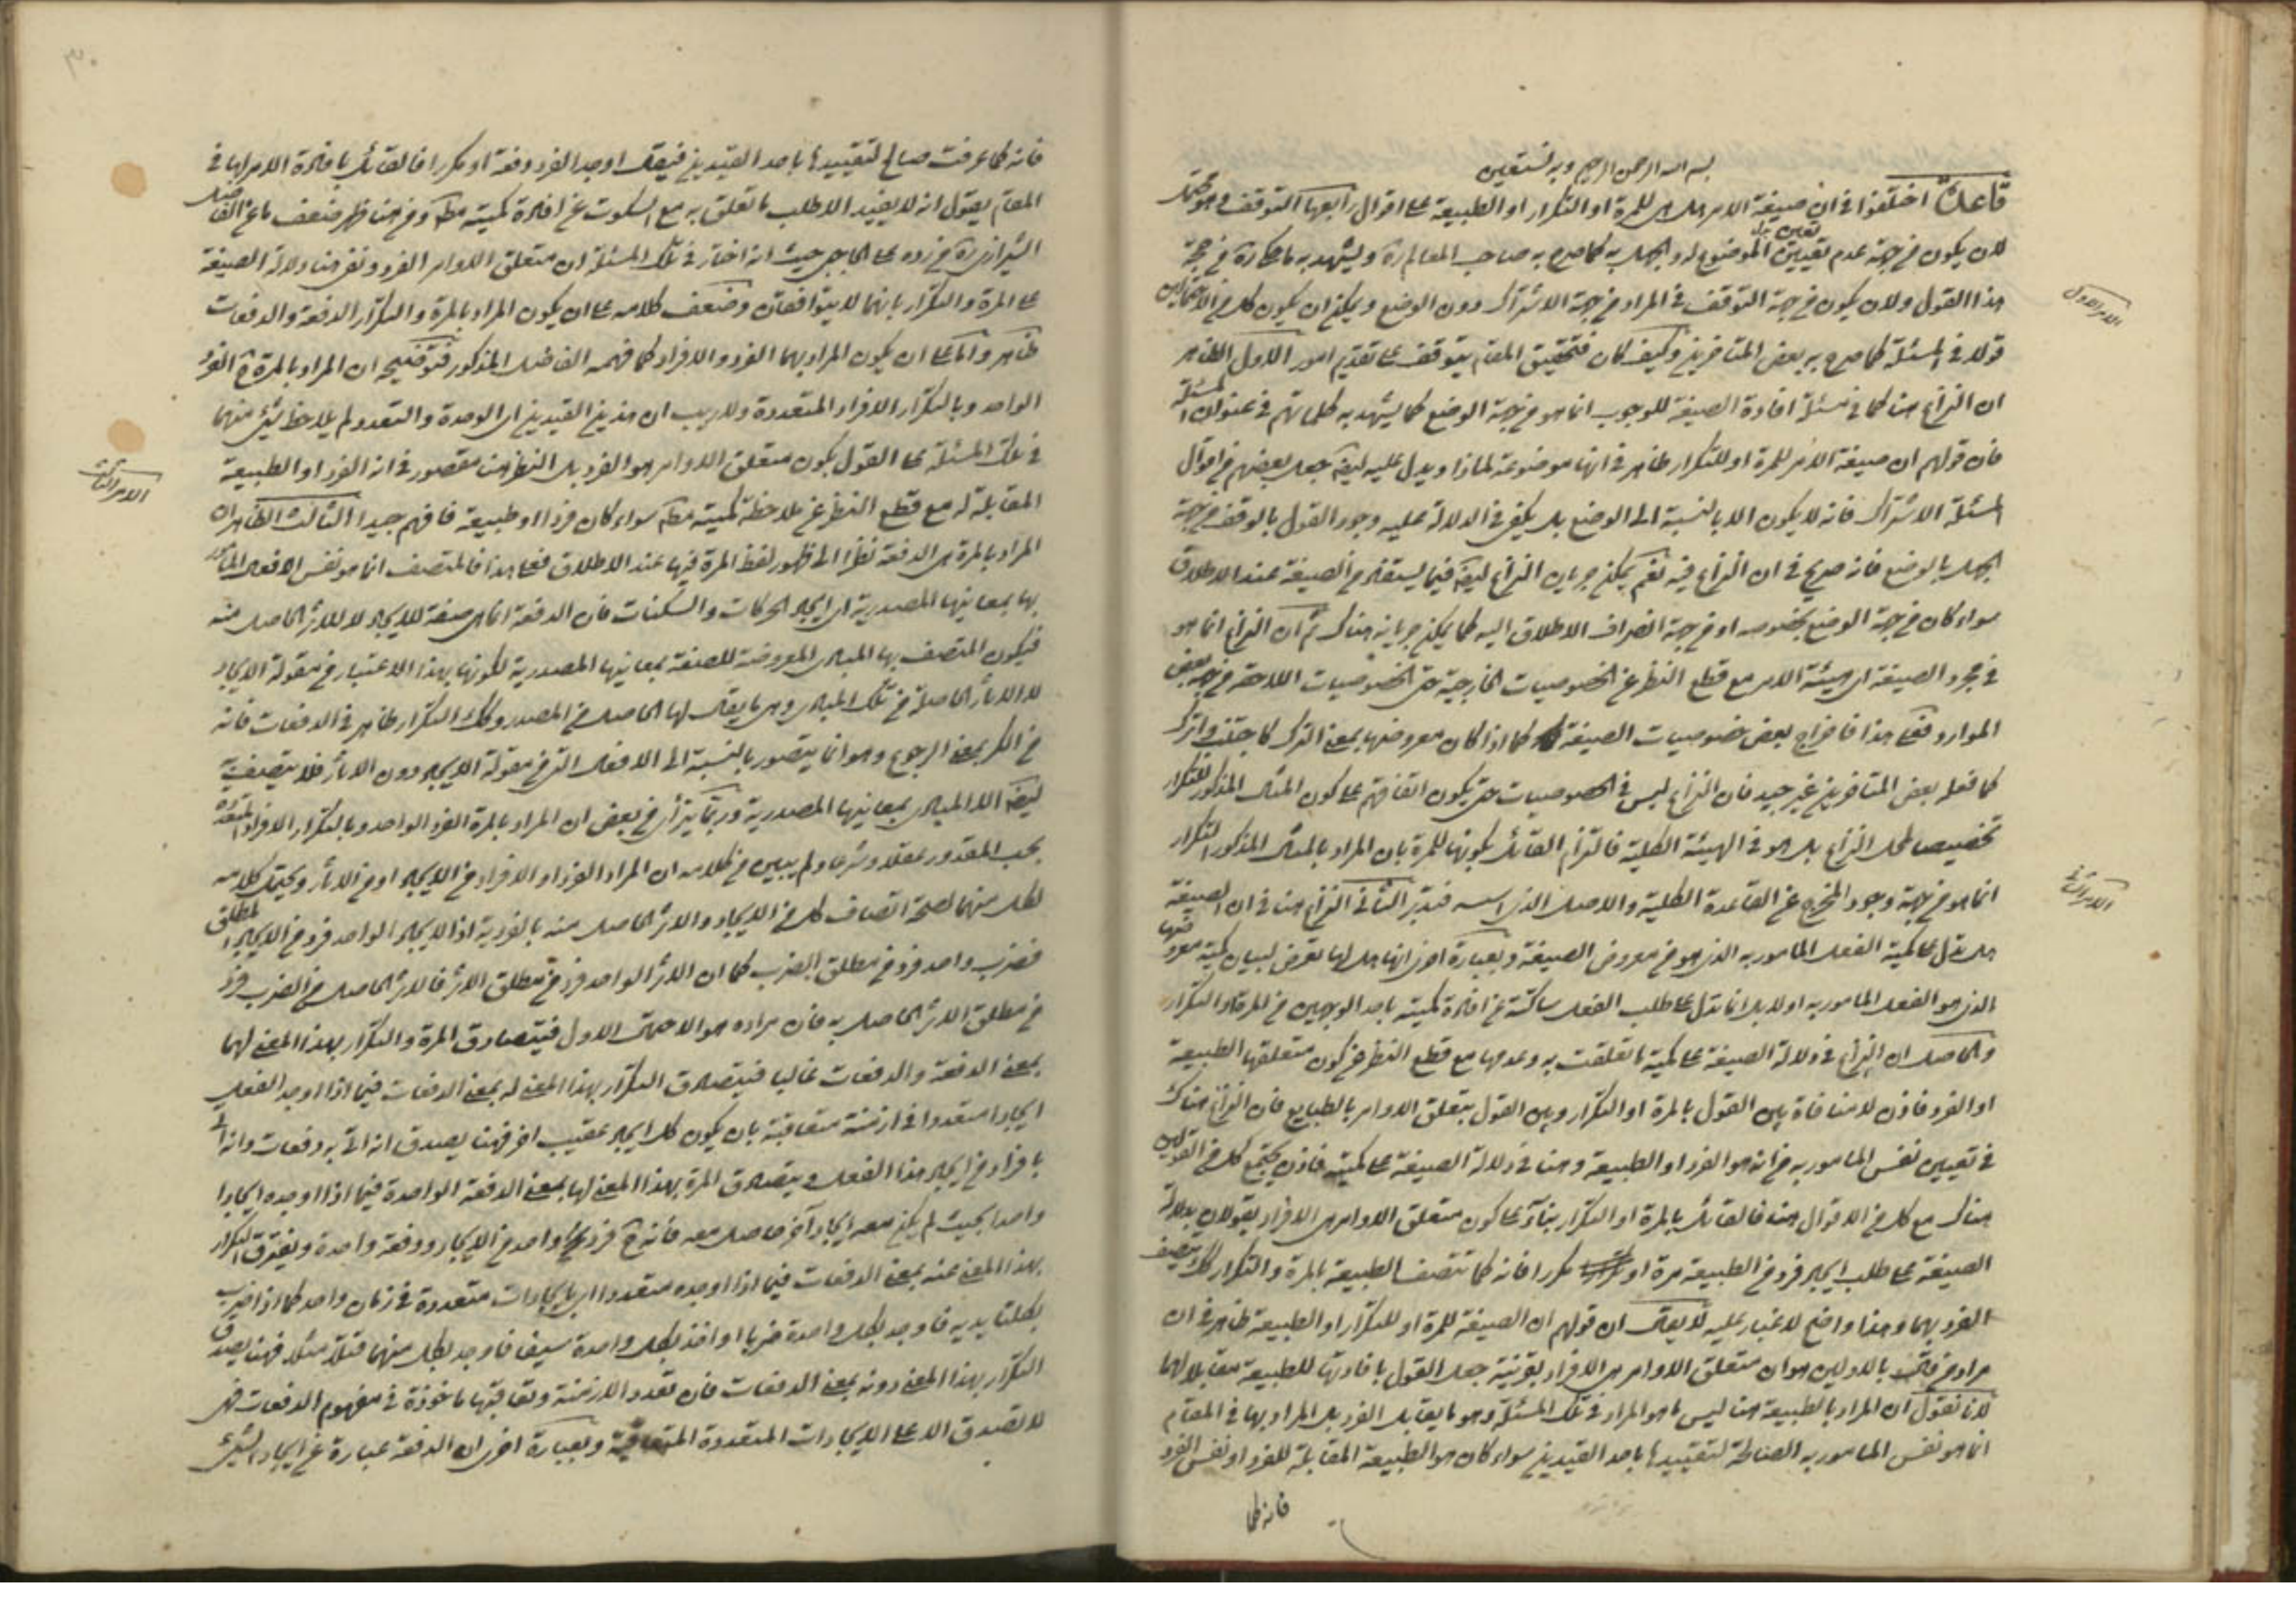 بسم الله الرحمن الرحيم وبه نستعين
قاعدة اختلفوا في ان صيغة الامر هل هي للمرة او التكرار او الطبيعة على اقوال رابعها التوقف وهو محتمل
لان يكون من جهة عدم تعيين الموضوع له والجهل به كما صرح به صاحب المعالم ره ويشهد به ما حكاه في حجة
هذا القول ولان يكون من جهة التوقف في المراد من جهة الاشتراك دون الوضع ويمكن ان يكون كل من الاحتمالين
قولا في المسئلة كما صرح به بعض المتاخرين وكيف كان فتحقيق المقام يتوقف على تقديم امور الاول الظاهر
الامر الاول
ان النزاع هنا كما في مسئلة افادة الصيغة للوجوب انما هو من جهة الوضع كما يشهد به كلماتهم في عنوان المسئلة
فان قولهم ان صيغة الامر للمرة او للتكرار ظاهر في انها موضوعة لماذا ويدل عليه ايضا جعل بعضهم من اقوال
المسئلة الاشتراك فانه لا يكون الا بالنسبة الى الوضع بل يكفي في الدلالة عليه وجود القول بالوقف من جهة
الجهل بالوضع فانه صريح في ان النزاع فيه نعم يمكن جريان النزاع ايضا فيما يستفاد من الصيغة عند الاطلاق
سواء كان من جهة الوضع بخصوصه او من جهة انصراف الاطلاق اليه كما يمكن جريانه هناك ثم ان النزاع انما هو
في مجرد الصيغة اي هيئة الامر مع قطع النظر عن الخصوصيات الخارجية حتى الخصوصيات اللاحقة من جهة بعض
الموارد فعلى هذا فاخراج بعض خصوصيات الصيغة كما اذا كان معروضها بمعنى الترك كاجتنب واترك
كما فعله بعض المتاخرين غير جيد فان النزاع ليس في الخصوصيات حتى يكون اتفاقهم على كون المثال المذكور للتكرار
تخصيصا لمحل النزاع بل هو في الهيئة الكلية فالتزام القائل بكونها للمرة بان المراد بالمثال المذكور التكرار
انما هو من جهة وجود المخرج عن القاعدة الكلية والاصل الذي اسسه فتدبر الثاني النزاع هنا في ان الصيغة
الامر الثاني
هل تدل على كمية الفعل المامور به الذي هو من معروض الصيغة وبعبارة اخرى انها هل لها تعرض لبيان كمية معروضها
الذي هو الفعل المامور به او لا بل انما تدل على طلب الفعل ساكتة عن افادة كميته باحد الوجهين من المرة او التكرار
والحاصل ان النزاع في دلالة الصيغة على كمية ما تعلقت به وعدمها مع قطع النظر عن كون متعلقها الطبيعة
او الفرد فاذن لا منافاة بين القول بالمرة او التكرار وبين القول بتعلق الاوامر بالطبايع فان النزاع هناك
في تعيين نفس المامور به من انه هو الفرد او الطبيعة وهنا في دلالة الصيغة على كميته فاذن يجتمع كل من القولين
هناك مع كل من الاقوال هنا فالقائل بالمرة او التكرار بناء على كون متعلق الاوامر هي الافراد يقولان بدلالة
الصيغة على طلب ايجاد فرد من الطبيعة مرة او مكررا فانه كما تتصف الطبيعة بالمرة والتكرار كذلك يتصف
الفرد بهما وهذا واضح لا غبار عليه لا يقال ان قولهم ان الصيغة للمرة او للتكرار او الطبيعة ظاهر في ان
مراد من قال بالاولين هو ان متعلق الاوامر هي الافراد بقرينة جعل القول بافادتها للطبيعة مقابلا لهما
لانا نقول ان المراد بالطبيعة هنا ليس ما هو المراد في تلك المسئلة وهو ما يقابل الفرد بل المراد بها في المقام
انما هو نفس المامور به الصالحة لتقييدها باحد القيدين سواء كان هو الطبيعة المقابلة للفرد او نفس الفرد
فانه كما
فانه كما عرفت صالح لتقييدها باحد القيدين فيقال اوجد الفرد دفعة او مكررا فالقائل بافادة الامر لها في
المقام يقول انه لا يفيد الا طلب ما تعلق به مع السكوت عن افادة كميته مطلقا ومن هنا ظهر ضعف ما عن الفاضل
الشيرازي ره في رده على الحاجبي حيث انه اختار في تلك المسئلة ان متعلق الاوامر الفرد ونفى هنا دلالة الصيغة
على المرة والتكرار بانهما لا يتوافقان وضعف كلامه على ان يكون المراد بالمرة والتكرار الدفعة والدفعات
ظاهر واما على ان يكون المراد بهما الفرد والافراد كما فهمه الفاضل المذكور فتوضيحه ان المراد بالمرة ح الفرد
الواحد وبالتكرار الافراد المتعددة ولا ريب ان هذين القيدين اي الوحدة والتعدد لم يلاحظ شيئ منهما
في تلك المسئلة على القول بكون متعلق الاوامر هو الفرد بل النظر هنا مقصور في انه الفرد او الطبيعة
المقابلة له مع قطع النظر عن ملاحظة كميته مطلقا سواء كان فردا او طبيعة فافهم جيدا الثالث الظاهر ان
الامر الثالث
المراد بالمرة هي الدفعة نظرا الى ظهور لفظ المرة فيها عند الاطلاق فعلى هذا فالمتصف انما هو نفس الافعال المامور
بها بمعانيها المصدرية اي ايجاد الحركات والسكنات فان الدفعة انما هي صفة للايجاد لا للاثر الحاصل منه
فيكون المتصف بها المبادي المعروضة للصيغة بمعانيها المصدرية لكونها بهذا الاعتبار من مقولة الايجاد
لا الاثار الحاصلة من تلك المبادي وهي ما يقال لها الحاصل من المصدر وكذلك التكرار ظاهر في الدفعات فانه
من الكر بمعنى الرجوع وهو انما يتصور بالنسبة الى الافعال التي من مقولة الايجاد دون الاثار فلا يتصف به
ايضا الا المبادي بمعانيها المصدرية وربما يتراءى من بعض ان المراد بالمرة الفرد الواحد وبالتكرار الافراد المتعددة
بحسب المقدور عقلا وشرعا ولم يبين في كلامه ان المراد الفرد او الافراد من الايجاد او من الاثار ويحتمل كلامه
لكل منهما لصحة اتصاف كل من الايجاد والاثر الحاصل منه بالفردية اذ الايجاد الواحد فرد من الايجاد المطلق
فضرب واحد فرد من مطلق الضرب كما ان الاثر الواحد فرد من مطلق الاثر فالاثر الحاصل من الضرب فرد
من مطلق الاثر الحاصل به فان مراده هو الاحتمال الاول فيتصادق المرة والتكرار بهذا المعنى لهما
بمعنى الدفعة والدفعات غالبا فيتصادق التكرار بهذا المعنى له بمعنى الدفعات فيما اذا اوجد الفعل
ايجادا متعددا في ازمنة متعاقبة بان يكون كل ايجاد عقيب اخر فهنا يصدق انه اتى به دفعات وانه اتى
بافراد من ايجاد هذا الفعل ويتصادق المرة بهذا المعنى لها بمعنى الدفعة الواحدة فيما اذا اوجده ايجادا
واحدا بحيث لم يكن معه ايجاد آخر حاصل معه فانه ح فرد واحد من الايجاد ودفعة واحدة ويفترق التكرار
بهذا المعنى عنه بمعنى الدفعات فيما اذا اوجده متعددا اي بايجادات متعددة في زمان واحد كما اذا ضرب
بكلتا يديه فاوجد بكل واحدة ضربا او اخذ بكل واحدة سيفا فاوجد بكل منهما قتلا مثلا فهنا يصدق
التكرار بهذا المعنى دونه بمعنى الدفعات فان تعدد الازمنة وتعاقبها ماخوذة في مفهوم الدفعات فهي
لا تصدق الا على الايجادات المتعددة المتعاقبة وبعبارة اخرى ان الدفعة عبارة عن ايجاد الشيئ